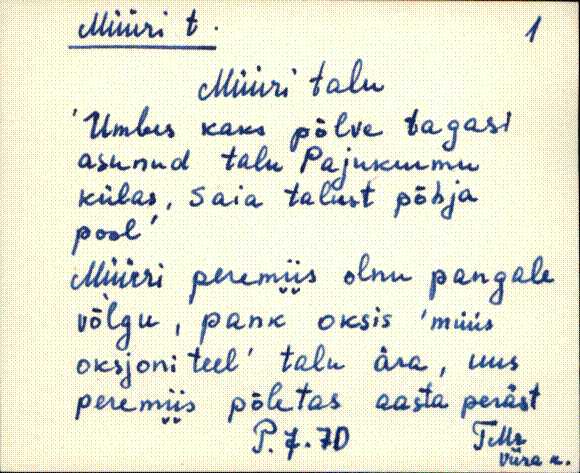 Müüri t.
1
Müüri talu
'Umbes kaks põlve tagasi
asunud talu Pajukurmu
külas, Saia talust põhja
pool'
Müüri peremiis olnu pangale
võlgu, pank oksis 'müüs
oksjoni teel' talu ära, uus
peremiis põletas aasta peräst
P. 7. 70
Viira k.